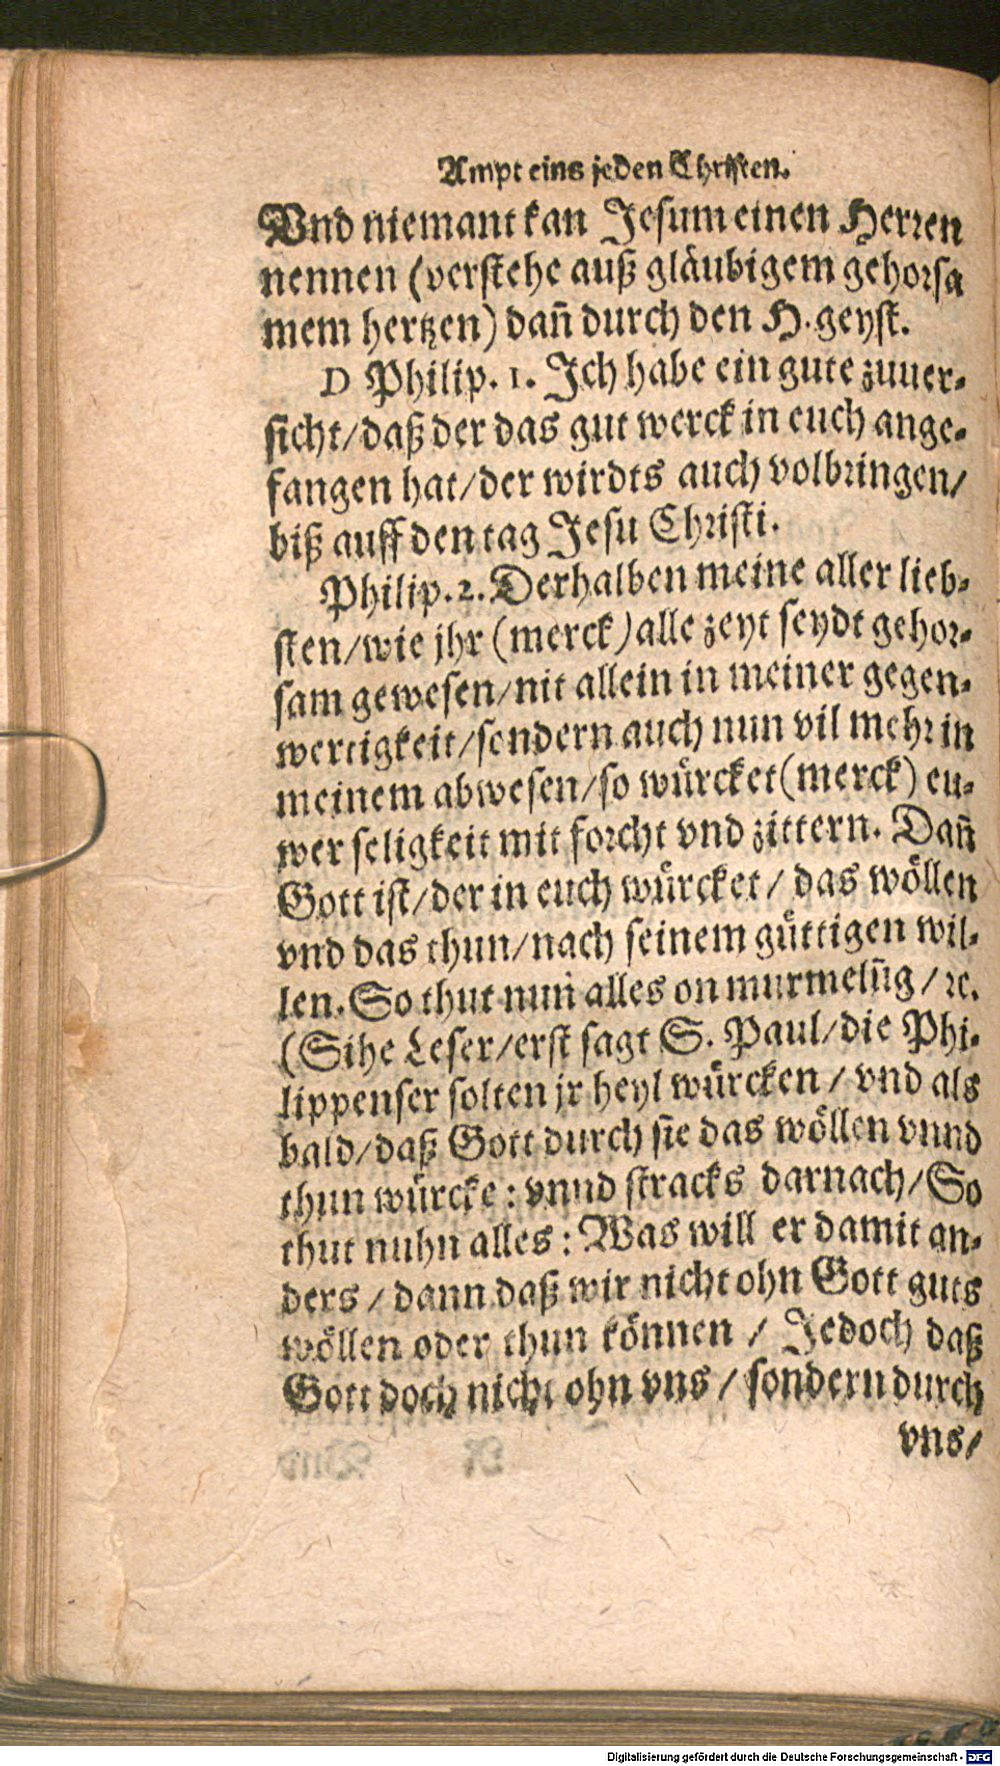 Ampt eins jeden Christen.
Vnd niemant kan Jesum einen Herren
nennen (verstehe auß gläubigem gehorsa
mem hertzen) dañ durch den H. geyst.
D Philip. 1. Ich habe ein gute zuuer-
sicht/daß der das gut werck in euch ange-
fangen hat/der wirdts auch volbringen/
biß auff den tag Jesu Christi.
Philip. 2. Derhalben meine aller lieb-
sten/wie jhr (merck) alle zeyt seydt gehor-
sam gewesen/nit allein in meiner gegen-
wertigkeit/sondern auch nun vil mehr in
meinem abwesen/so würcket (merck) eu-
wer seligkeit mit forcht vnd zittern. Dañ
Gott ist/der in euch würcket/ das wöllen
vnd das thun/nach seinem güttigen wil-
len. So thut nun alles on murmelũg/ ꝛc.
(Sihe Leser/erst sagt S. Paul/die Phi-
lippenser solten jr heyl würcken/ vnd als
bald/daß Gott durch sie das wöllen vnnd
thun würcke: vnnd stracks darnach/So
thut nuhn alles: Was will er damit an-
ders/ dann daß wir nicht ohn Gott guts
wöllen oder thun können/ Jedoch daß
Gott doch nicht ohn vns/ sondern durch
vns/
Digitalisierung gefördert durch die Deutsche Forschungsgemeinschaft - DFG